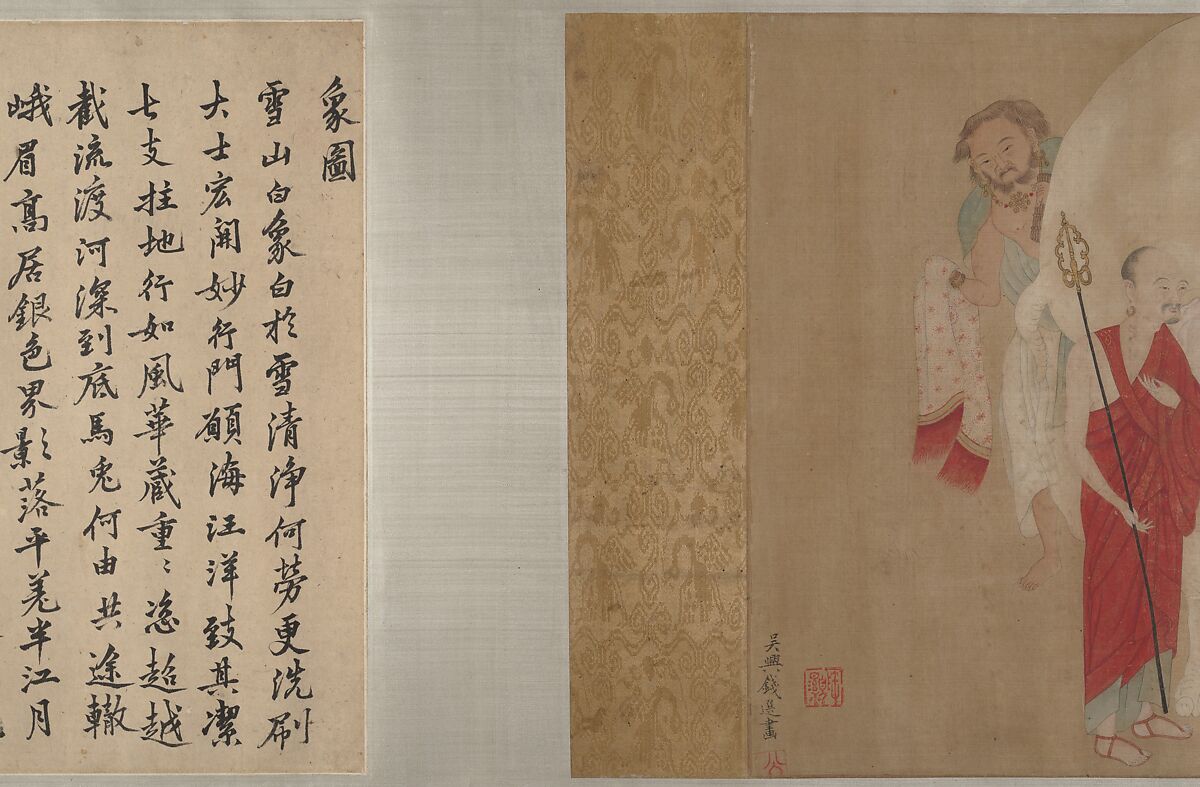 吳興錢選畫
象圖
雪山白象白於雪清淨何勞更洗刷
大士宏開妙行門願海汪洋致其潔
七支拄地行如風華藏重〻恣超越
截流渡河深到底馬兔何由共途轍
峨眉高居銀色界影落平羌半江月